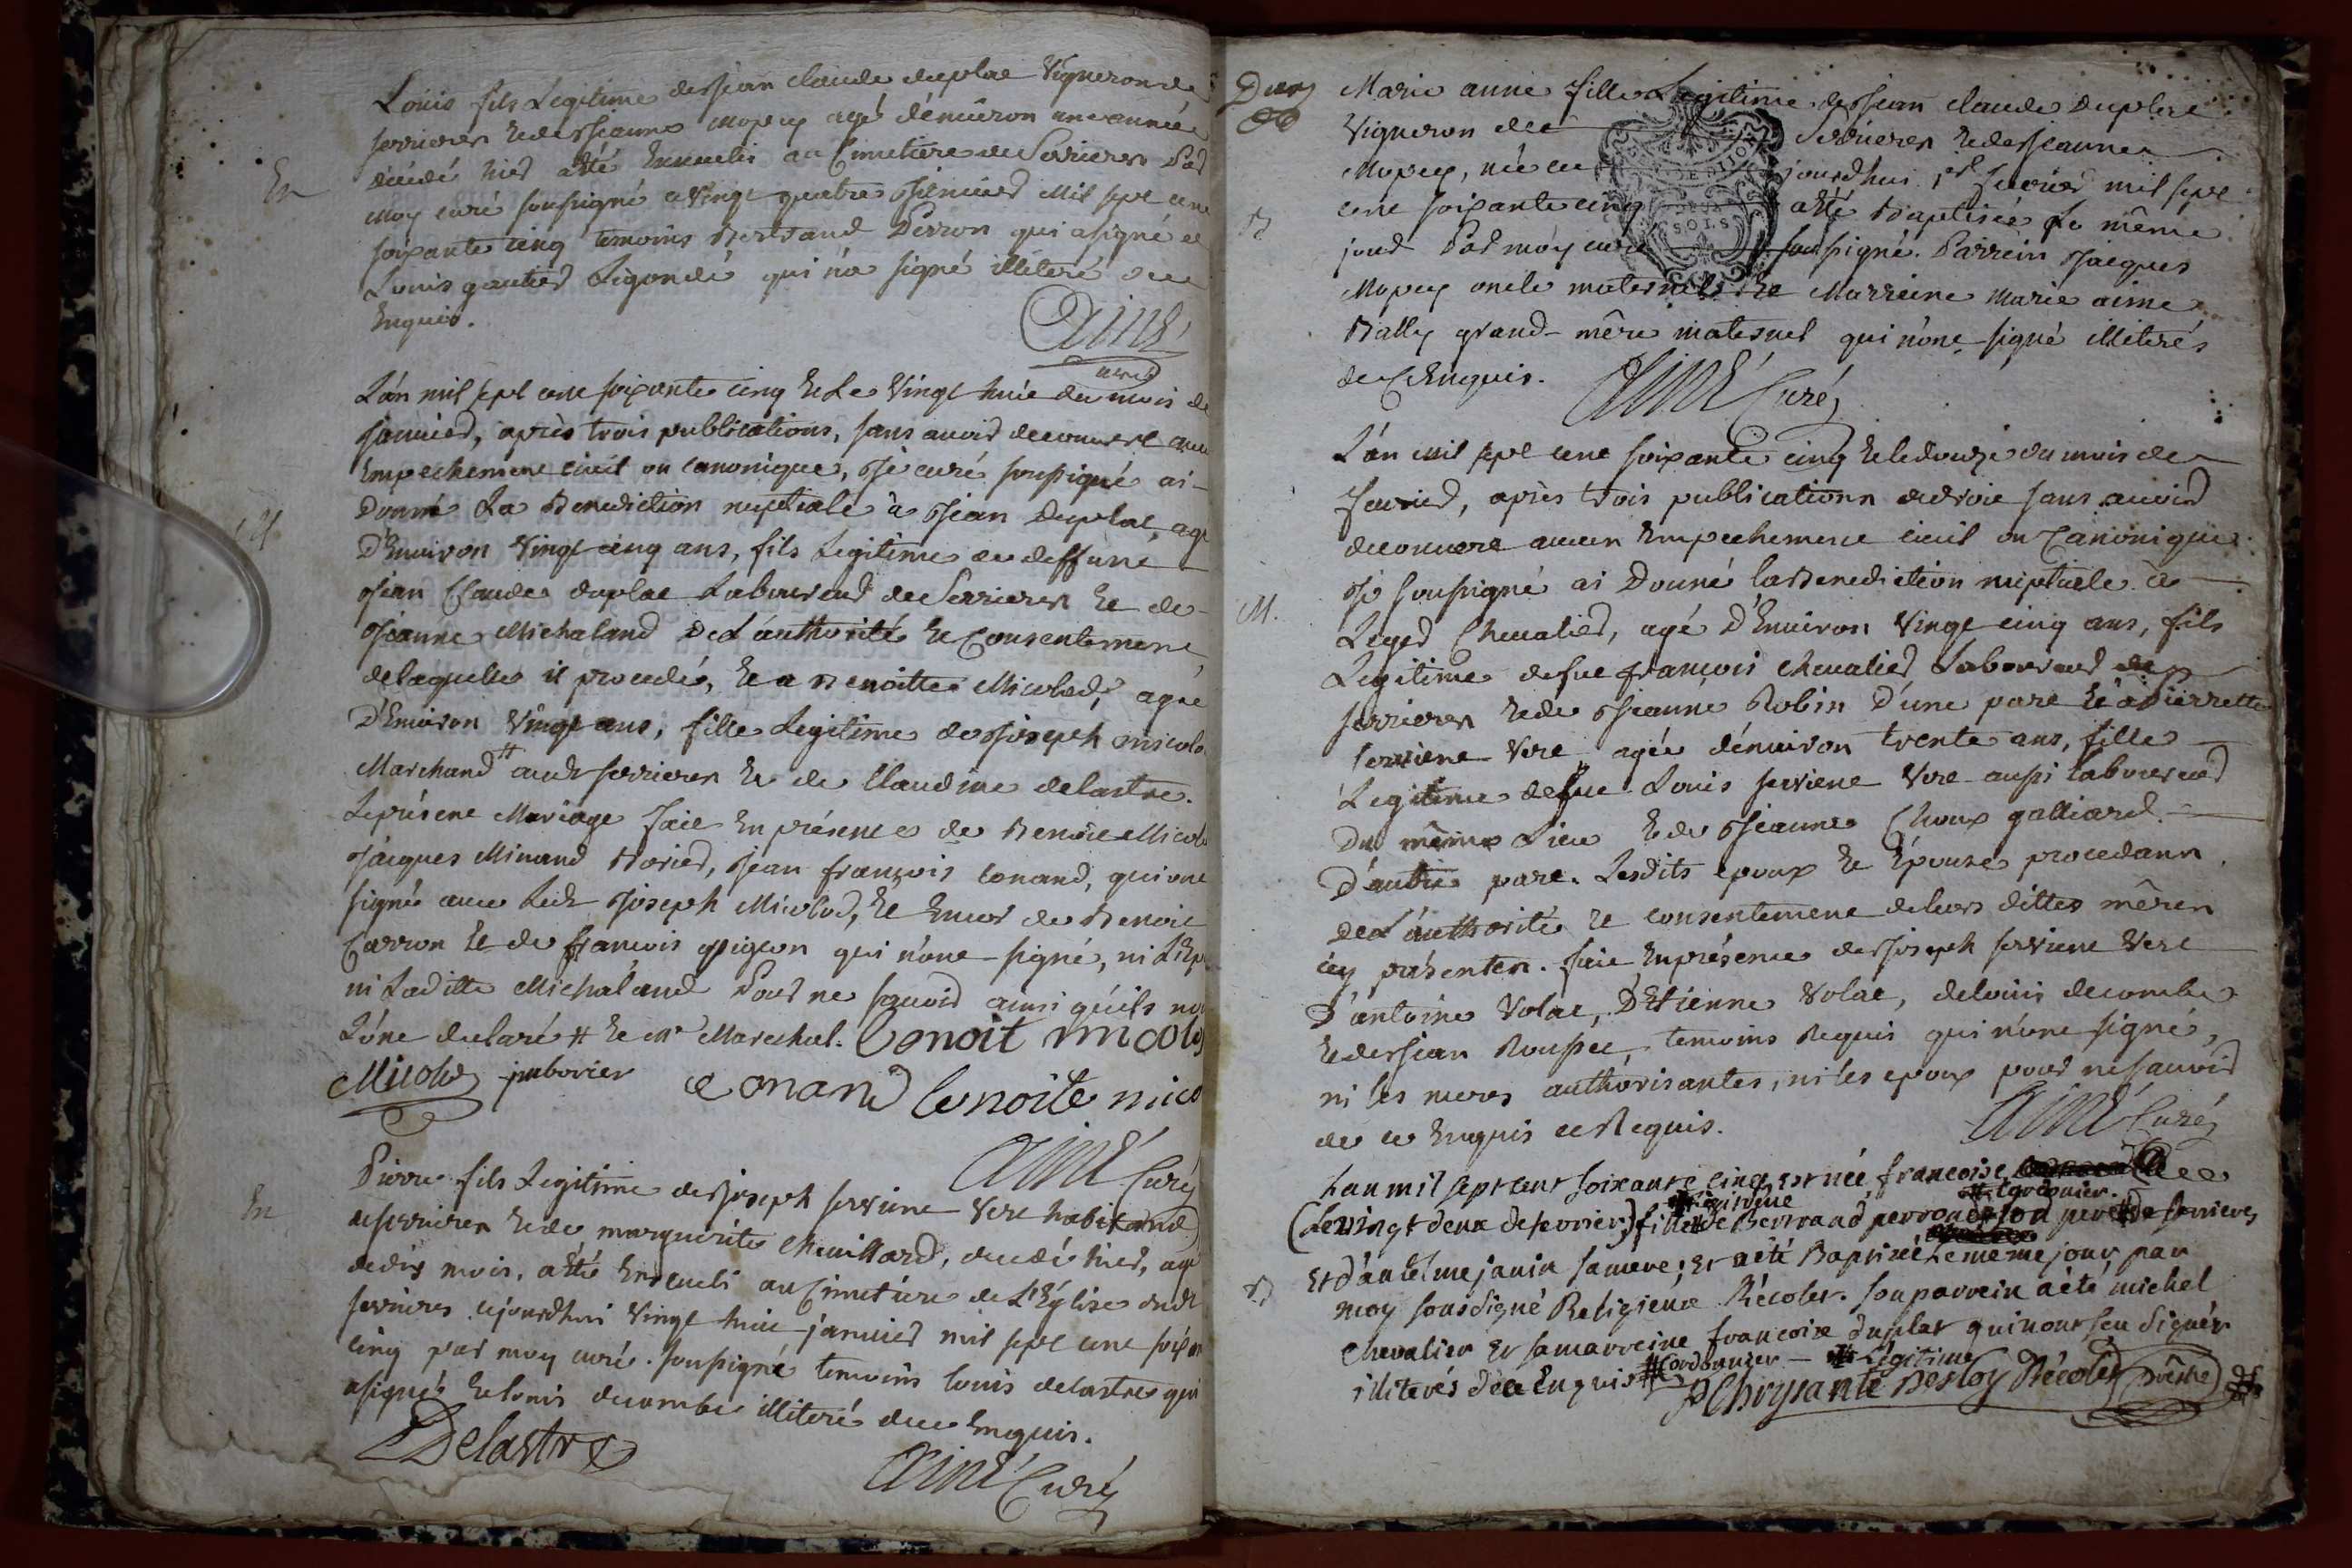 Louis fils Legitime de Jean claude duplat Vigneron de
serrieres & de Jeanne Mopey agé dénuiron une année
décédé hier a été Enseueli au Cimetiere de Serrieres Par
En
moy curé soussigné ce Vingt quatre Jenuier Mil sept cent
soixante cinq temoins Bertrand Perron qui a signé et
Louis gautier Ligonde qui n'a signé illiteré de ce
Enquis.
Aimé
curé
L'án mil sept cent soixante cinq & Le Vingt huit du mois de
Januier, après trois publications, sans auoir decouuert aucu
Empechement ciuil ou canonique, Je curé soussigné ai
M
Donné La Benediction nuptiale à Jean Duplat, agé
D'Enuiron Vingt cinq ans, fils Legitime de deffunt
Jean Claude duplat Laboureur de Serrieres & de
Jeanne Michaland De L'authorité & Consentement
de laquelle il procede, & a Benoitte Micolod, agée
D'Enuiron Vingt ans, fille Legitime de Joseph micolo
Marchand # audt serrieres & de Claudine delastre.
Le présent Mariage fait En présence de Benoit Micolo
Jacques Minand Borier, Jean françois conand, qui ont
signé auec Ledt Joseph Micolod, & Encor de Benoit
Carron & de françois pigeon qui n'ont signé, ni L'Ep
ni Laditte Michaland Pour ne sçauoir ainsi qu'ils
L'ont declaré # & Mr Marechal. benoit micolo
Micolod jmborier conand benoite mico
Aimé Curé
Pierre fils Legitime de Joseph seruient Vert habitand
En
de serrieres & de marguerite cheuillard, decedé hier, agé
de dix mois, a été Enseueli au Cimetiere de L'Église dudt
serrieres cejourdhui Vingt huit januier mil sept cent soixan
cinq par moy curé soussigné temoins louis delastre qui
a signé & louis decombe illiteré de ce Enquis.
Delastre
Aimé Curé
Marie anne fille Legitime de Jean claude duplat
Vigneron de Serrieres & de Jeanne
Mopey, née ce jourdhui 1er feurier mil sept
cent soixante cinq a été Baptisée Le même
B
jour Par moy curé soussigné. Parrein Jacques
Mopey oncle maternel & Marreine Marie aime
Bally grand-mère maternel qui n'ont signé illiterés
de ce Enquis. Aimé Curé
L'án mil sept cent soixante cinq & le douze du mois de
feurier, après trois publications sans auoir
decouuert aucun Empechement ciuil ou Canonique
Je soussigné ai Donné la Benediction nuptiale à
M.
Leger Cheualier, agé D'Enuiron Vingt cinq ans, fils
Legitime de fue françois cheualier Laboureur de
serrieres & de Jeanne Robin D'une part & a Pierrette
seruient Vert, agée dénuiron trente ans, fille
Legitime de fue Louis seruient Vert aussi laboureur
Du même Lieu & de Jeanne Choux galliard.
D'autre part. Lesdits epoux & Épouse procedans
De L'authorité & consentement de leurs dittes mères
icy présentes. fait En présence de Joseph seruient Vert
D'antoine Volat, D'Etienne Volat, de louis decombe
& de Jean Rousset, temoins Requis qui n'ont signé,
ni les meres authorisantes, ni les epoux pour ne sauoir
de ce Enquis et Requis. Aimé Curé
Lan mil sept cent soixante cinq, est née francoise
(Le vingt deux defevrier,) fille # de Bertrand perron # son pere de serrieres
Et d'antelme janin sa mere; Et a été Baptisée Le meme jour par
B
moy sous signé Religieux Récolet. son parrein a été michel
chevalier Et sa marreine francoise duplat qui n'ont seu signér
illiterés de ce Enquis # Cordonnier # Légitime
P Chrysante Recolet Prêtre